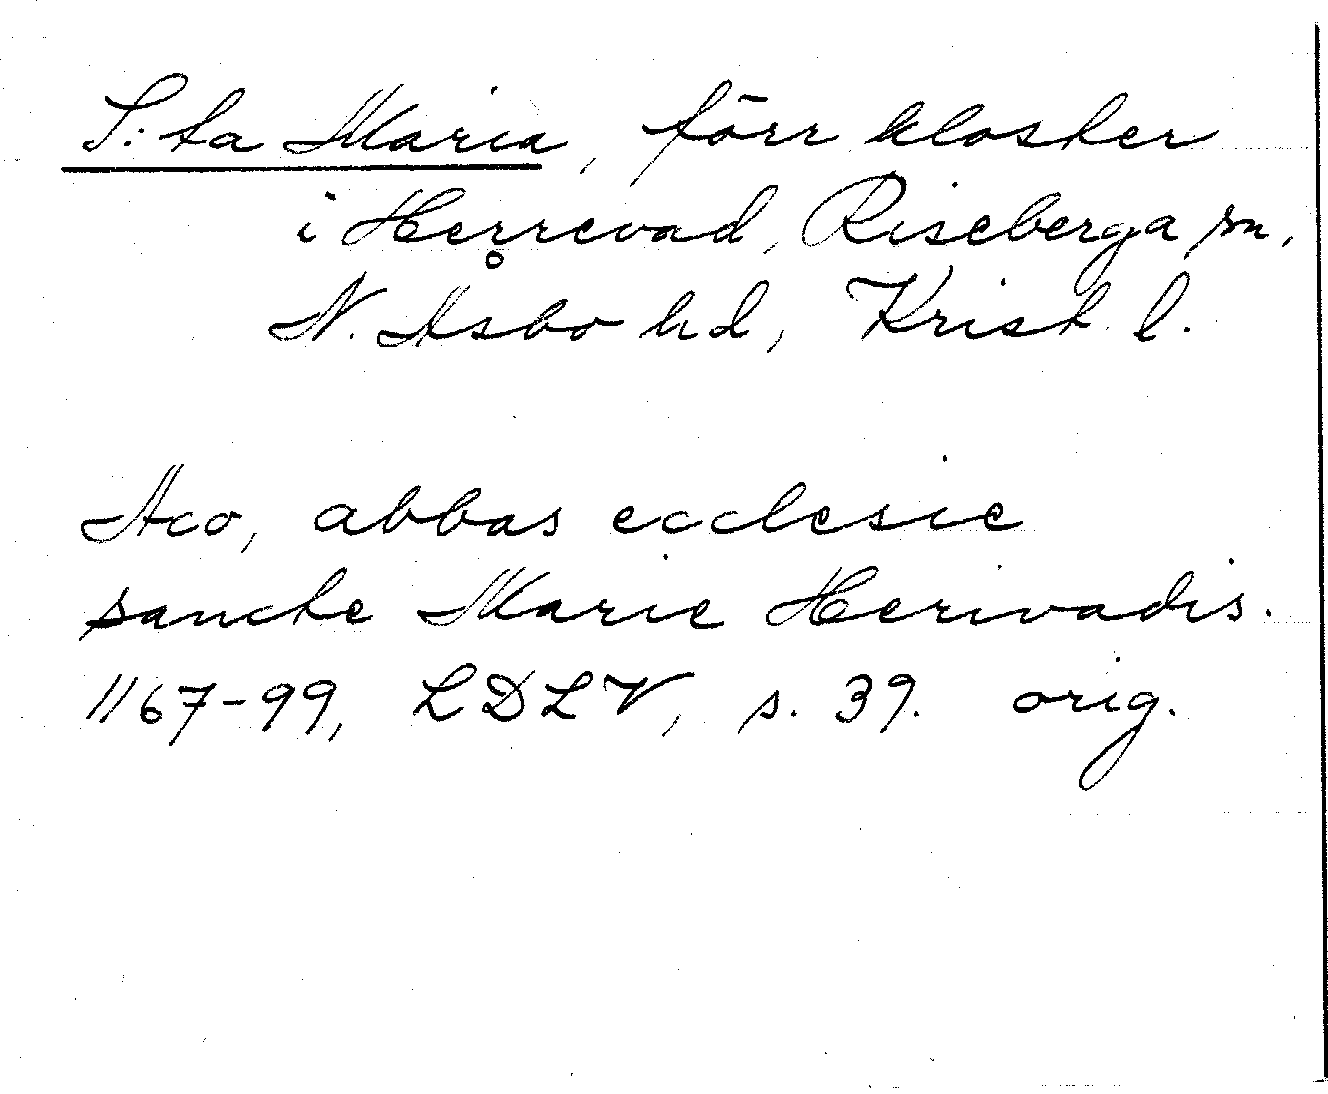 S:ta Maria, förr kloster
i Herrevad, Riseberga sn,
N. Åsbo hd, Krist. l.
Aco, abbas ecclesie
sancte Marie Herivadis.
1167-99, LDLV, s. 39. orig.